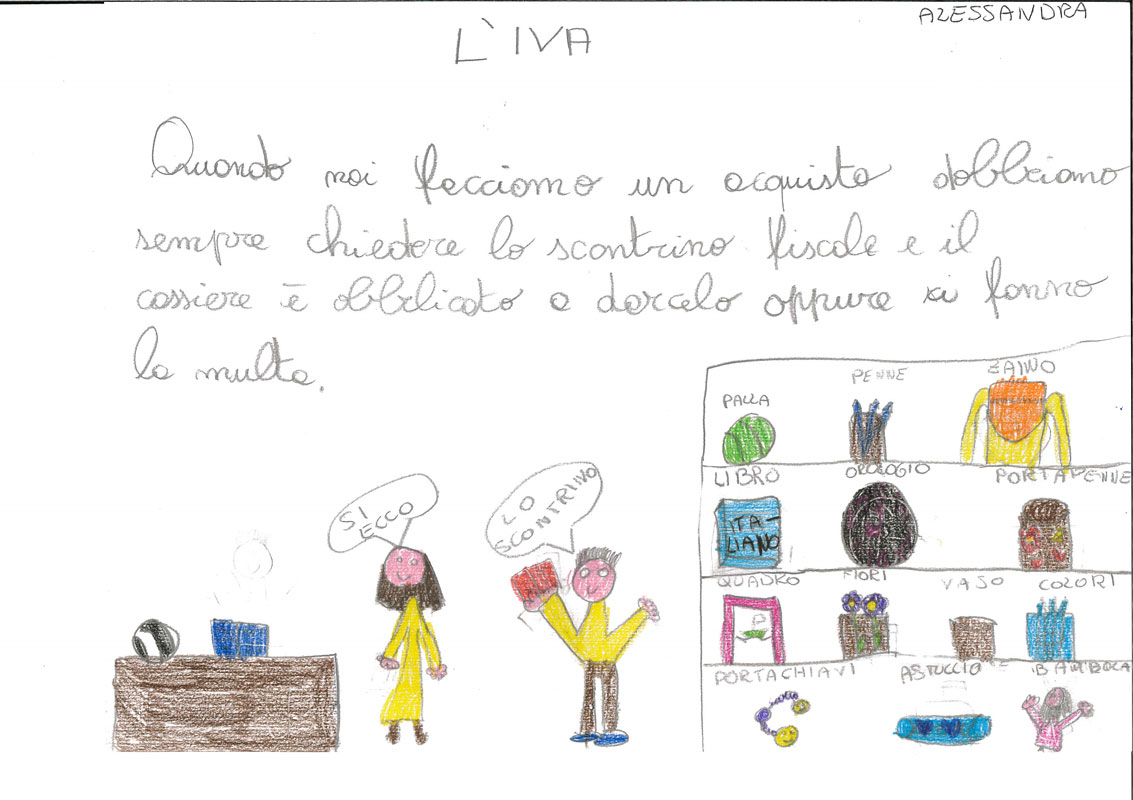 ALESSANDRA
L'IVA
Quando noi facciamo un acquisto dobbiamo
sempre chiedere lo scontrino fiscale e il
cassiere è obbligato a darcelo oppure xi fanno
la multa.
SI
ECCO
LO
SCONTRINO
PALLA PENNE ZAINO
LIBRO OROLOGIO PORTAPENNE
ITA-
LIANO
QUADRO FIORI VASO COLORI
PORTACHIAVI ASTUCCIO BAMBOLA